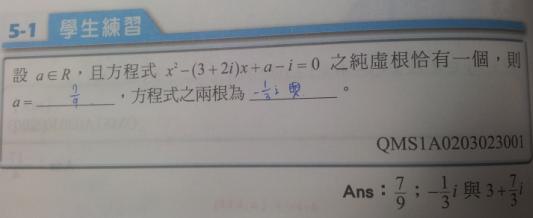 5-1 學生練習
設 a∈R，且方程式 x²−(3+2i)x+a−i=0 之純虛根恰有一個，則
a= 7/9 ，方程式之兩根為 −1/3 i 與 。
QMS1A0203023001
Ans：7/9；−1/3 i 與 3+7/3 i